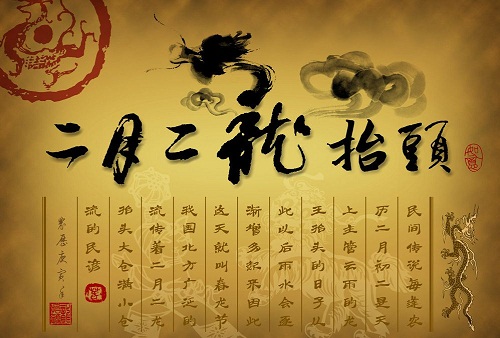 二月二龍抬頭
民间传说每逢农
历二月初二是天
上主管云雨的龙
王抬头的日子从
此以后雨水会逐
渐增多起来因此
这天就叫春龙节
我国北方广泛的
流传着二月二龙
抬头大仓满小仓
流的民谚
農历庚寅年